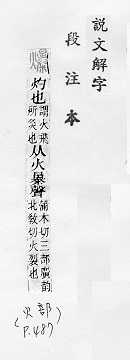 說文解字
段注本
爆 灼也謂火飛所炙也从火暴聲蒲木切三部廣韵北教切火裂也
(火部)
P.487